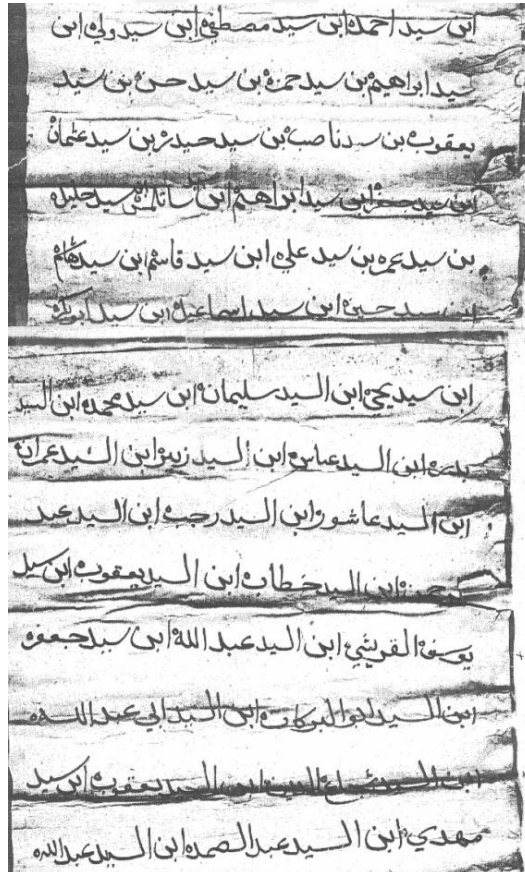 ابن سيد احمد ابن سيد مصطفى ابن سيد ولي ابن
سيد ابراهيم بن سيد حمزه بن سيد حسن بن سيد
يعقوب بن سيد ناصب بن سيد حيدر بن سيد عثمان
ابن سيد جعفر ابن سيد ابراهيم ابن سيد خليل
بن سيد عمر بن سيد علي ابن سيد قاسم ابن سيد
ابن سيد حسين ابن سيد اسماعيل ابن سيد ابوبكر
ابن سيد يحيى ابن السيد سليمان ابن سيد محمد ابن السيد
بدره ابن السيد عباس ابن السيد زبير ابن السيد عمران
ابن السيد عاشور ابن السيد رجب ابن السيد عبد
ابن السيد خطاب ابن السيد يعقوب ابن سيد
يوسف القريشي ابن السيد عبد الله ابن سيد جعفر
ابن السيد ابو البركات ابن السيد ابي عبد الله
ابن السيد ابن السيد يعقوب ابن سيد
مهدي ابن السيد عبد الصمد ابن السيد عبد الله